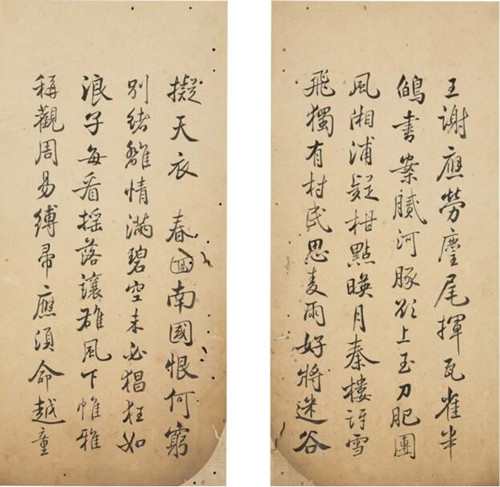 王謝應勞麈尾揮瓦雀半
書案膩河豚欲上玉刀肥團
風湘浦疑柑點暎月秦樓訝雪
飛獨有村民思麦雨好將迷谷
擬天衣 春回南國恨何窮
別緒離情滿碧空未必猖狂如
浪子每看搖落讓雄風下帷雅
稱觀周易縛帚應須命越童